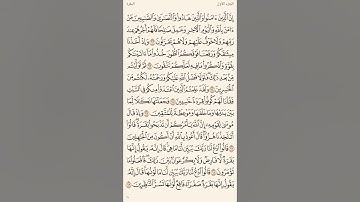 الجزء الأول البقرة
إِنَّ ٱلَّذِينَ ءَامَنُوا۟ وَٱلَّذِينَ هَادُوا۟ وَٱلنَّصَٰرَىٰ وَٱلصَّٰبِـِٔينَ مَنْ
ءَامَنَ بِٱللَّهِ وَٱلْيَوْمِ ٱلْـَٔاخِرِ وَعَمِلَ صَٰلِحًا فَلَهُمْ أَجْرُهُمْ عِندَ
رَبِّهِمْ وَلَا خَوْفٌ عَلَيْهِمْ وَلَا هُمْ يَحْزَنُونَ ٦٢ وَإِذْ أَخَذْنَا
مِيثَٰقَكُمْ وَرَفَعْنَا فَوْقَكُمُ ٱلطُّورَ خُذُوا۟ مَآ ءَاتَيْنَٰكُم
بِقُوَّةٍ وَٱذْكُرُوا۟ مَا فِيهِ لَعَلَّكُمْ تَتَّقُونَ ٦٣ ثُمَّ تَوَلَّيْتُم
مِّنۢ بَعْدِ ذَٰلِكَ فَلَوْلَا فَضْلُ ٱللَّهِ عَلَيْكُمْ وَرَحْمَتُهُۥ لَكُنتُم مِّنَ
ٱلْخَٰسِرِينَ ٦٤ وَلَقَدْ عَلِمْتُمُ ٱلَّذِينَ ٱعْتَدَوْا۟ مِنكُمْ فِى ٱلسَّبْتِ
فَقُلْنَا لَهُمْ كُونُوا۟ قِرَدَةً خَٰسِـِٔينَ ٦٥ فَجَعَلْنَٰهَا نَكَٰلًا لِّمَا
بَيْنَ يَدَيْهَا وَمَا خَلْفَهَا وَمَوْعِظَةً لِّلْمُتَّقِينَ ٦٦ وَإِذْ قَالَ
مُوسَىٰ لِقَوْمِهِۦٓ إِنَّ ٱللَّهَ يَأْمُرُكُمْ أَن تَذْبَحُوا۟ بَقَرَةً قَالُوٓا۟
أَتَتَّخِذُنَا هُزُوًا قَالَ أَعُوذُ بِٱللَّهِ أَنْ أَكُونَ مِنَ ٱلْجَٰهِلِينَ ٦٧
قَالُوا۟ ٱدْعُ لَنَا رَبَّكَ يُبَيِّن لَّنَا مَا هِىَ قَالَ إِنَّهُۥ يَقُولُ إِنَّهَا
بَقَرَةٌ لَّا فَارِضٌ وَلَا بِكْرٌ عَوَانٌۢ بَيْنَ ذَٰلِكَ فَٱفْعَلُوا۟ مَا
تُؤْمَرُونَ ٦٨ قَالُوا۟ ٱدْعُ لَنَا رَبَّكَ يُبَيِّن لَّنَا مَا لَوْنُهَا قَالَ إِنَّهُۥ
يَقُولُ إِنَّهَا بَقَرَةٌ صَفْرَآءُ فَاقِعٌ لَّوْنُهَا تَسُرُّ ٱلنَّٰظِرِينَ ٦٩